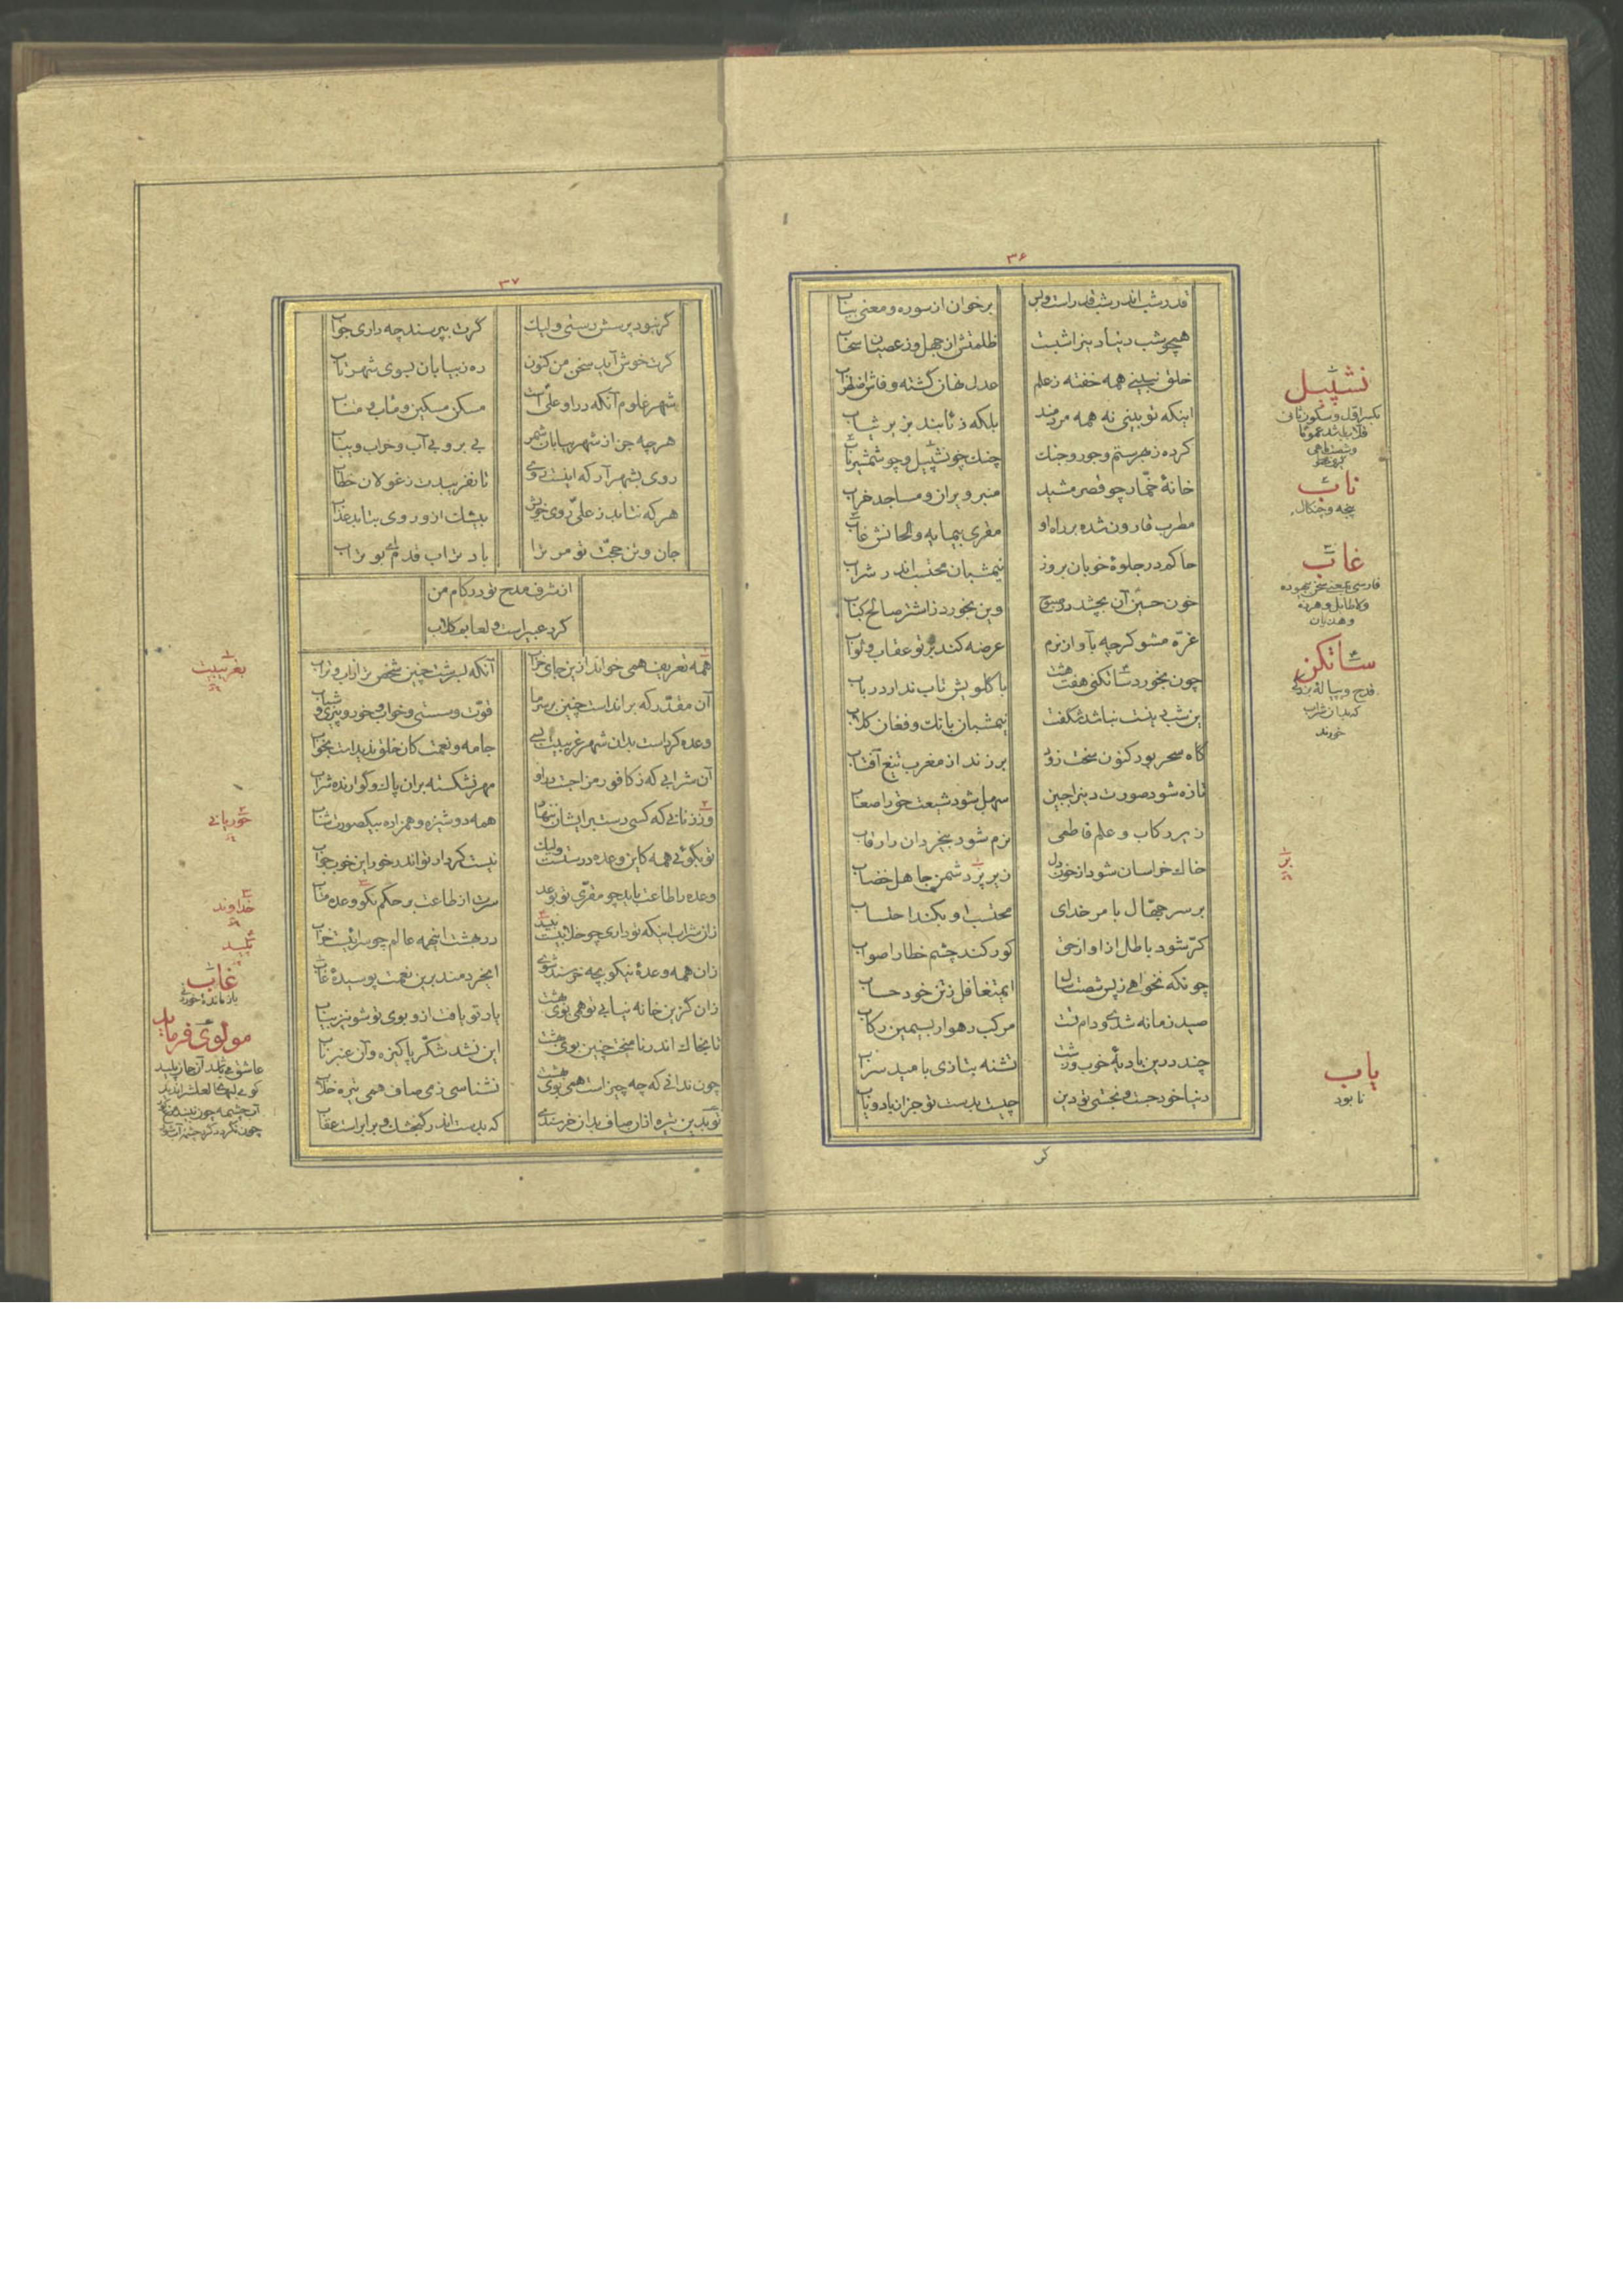 ۳۶
قدر شب اندر شب قدر است و بس
برخوان از سوره و معنی بیاب
همچو شب دنیا دین را شبست
ظلمتش از جهل و ز عصیان سحاب
خلق نبینی همه خفته ز علم
عدل نهان گشته و فاش اضطراب
اینکه تو بینی نه همه مردمند
بلکه ذئابند بزیر ثیاب
کرده ز هر ستم و جور و جنگ
چنگ چو نشپیل و چو شمشیر ناب
خانهٔ خمّار چو قصر مشید
منبر ویران و مساجد خراب
مطرب قارون شده بر راه او
مقری بیمایه و الحانش غاب
حاکم در جلوهٔ خوبان بروز
نیمشبان محتسب اندر شراب
خون حسین آن بچشد در صبوح
وین بخورد ز اشتر صالح کباب
غرّه مشو گرچه بآواز نرم
عرضه کند بر تو عقاب و ثواب
چون بخورد ساتکنی هفت هشت
با گلویش تاب ندارد رباب
این شب بینت نباشد شگفت
نیمشبان بانگ و فغان کلاب
گاه سحر بود کنون سخت زود
برزند از مغرب تیغ آفتاب
تازه شود صورت دین را جبین
سهل شود شیعت حق را صعاب
زیر رکاب و علم فاطمی
نرم شود بیخردان را رقاب
خاک خراسان شود از خون دل
زیر برّ دشمن جاهل خضاب
بر سر جهّال بامر خدای
محتسب او بکند احتساب
کرّ شود باطل از آواز حق
کور کند چشم خطا را صواب
چونکه نخواهی ز پس شصت سال
ای متغافل ز تن خود حساب
صید زمانه شدی و دام تست
مرکب رهوار بسیمین رکاب
چند در این بادیهٔ خوب و زشت
تشنه بتازی بامید سراب
دنیا خود جست و نجستی تو دین
چیست بدست تو جز از باد و یاب
نشپیل
بکسر اوّل و سکون ثانی
قلاب باشد عموما
ناب
پنجه و چنگال
غاب
فارسی بمعنی سخن بیهوده
و هذیان
ساتکن
قدح و پیالهٔ بزرگ
که بدان شراب
خورند
برّ
یاب
نابود
۳۷
گر نبود پرسش رستی ولیک
گرت بپرسند چه داری جواب
گرت خوش آید سخن من کنون
ره ز بیابان بسوی شهر تاب
شهر علوم آنکه در او علیّ است
مسکن مسکین و مآب و متاب
هرچه جز از شهر بیابان شمر
بی بر و بی آب و خراب و یباب
روی بشهر آر که اینست روی
تا نفریبدت ز غولان خطاب
هرکه نتابد ز علیّ روی خویش
بیشک ازو روی بتابد عذاب
جان و تن حجّت تو مر ترا
باد تراب قدم ای بوتراب
از شرف مدح تو در کام من
گرد عبیر است و لعابم گلاب
همه تعریف همی خواند ازین جای خراب
آنکه بسرشت چنین شخص ترا از آب و تراب
آن مقدّر که برانداست چنین بر سر ما
قوّت و سستی و خواب و خور و پیری و شباب
وعده کرداست بدان شهر غریبیت بسی
جامه و نعمت کان خلق ندیداست بخواب
آن شرابی که ز کافور مزاجست در او
مهر نشکسته بر آن پاک و گوارنده شراب
وز زنانی که کسی دست بر ایشان ننهاد
همه دوشیزه و همزاده بیکصورت شاب
تو بگوئی همه کاین وعده درستست ولیک
نیست کردار تو اندر خور این خوب جواب
وعده را طاعت باید چو مقرّی تو بوعد
سرت از طاعت بر حکم نکو وعده متاب
زان شراب اینکه تو داری چو خلابیست پلید
در بهشت اینهمه عالم چو سرائیست خراب
زان همه وعدهٔ نیکو بچه خرسند شدی
ای خردمند برین نعمت پوسیدهٔ غاب
زان کزین خانه نیابی تو همی بوی بهشت
چون ندانی که چه چیز است همی بوی بهشت
نشناسی ز می صاف همی تیره خلاب
که بدست اندر گنجشک و برابر است عقاب
بغریبیت
خوربانی
خداوند
پلید
غاب
بازماندهٔ خوردنی
مولوی فرماید